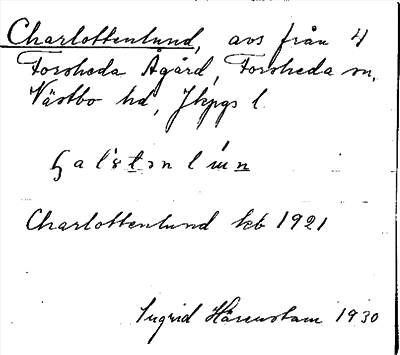 Charlottenlund, avs från 4
Forsheda Ågård, Forsheda sn,
Västbo hd, Jkpgs l.
Charlottenlund kb 1921
Ingrid Hårenstam 1930